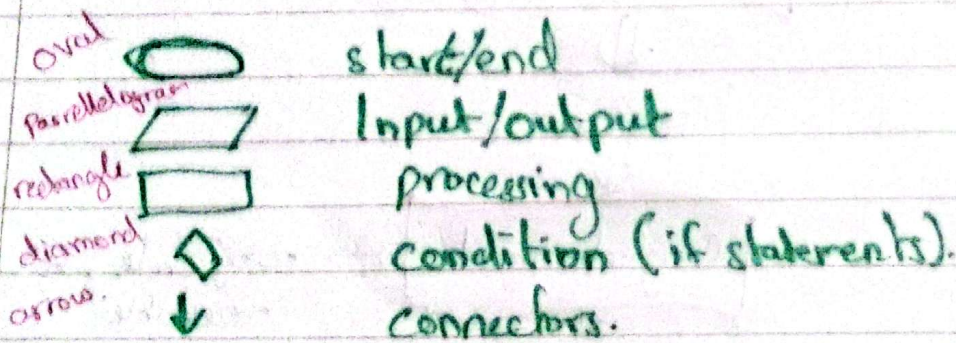 oval start/end
Parrellelogram Input/output
rectangle processing
diamond condition (if statements).
arrow. connectors.